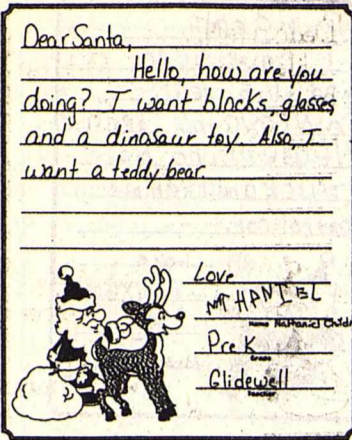 Dear Santa,
Hello, how are you
doing? I want blocks, glasses
and a dinosaur toy. Also, I
want a teddy bear.
Love
NATHANIEL
Name Nathaniel Child
Pre K
Grade
Glidewell
Teacher